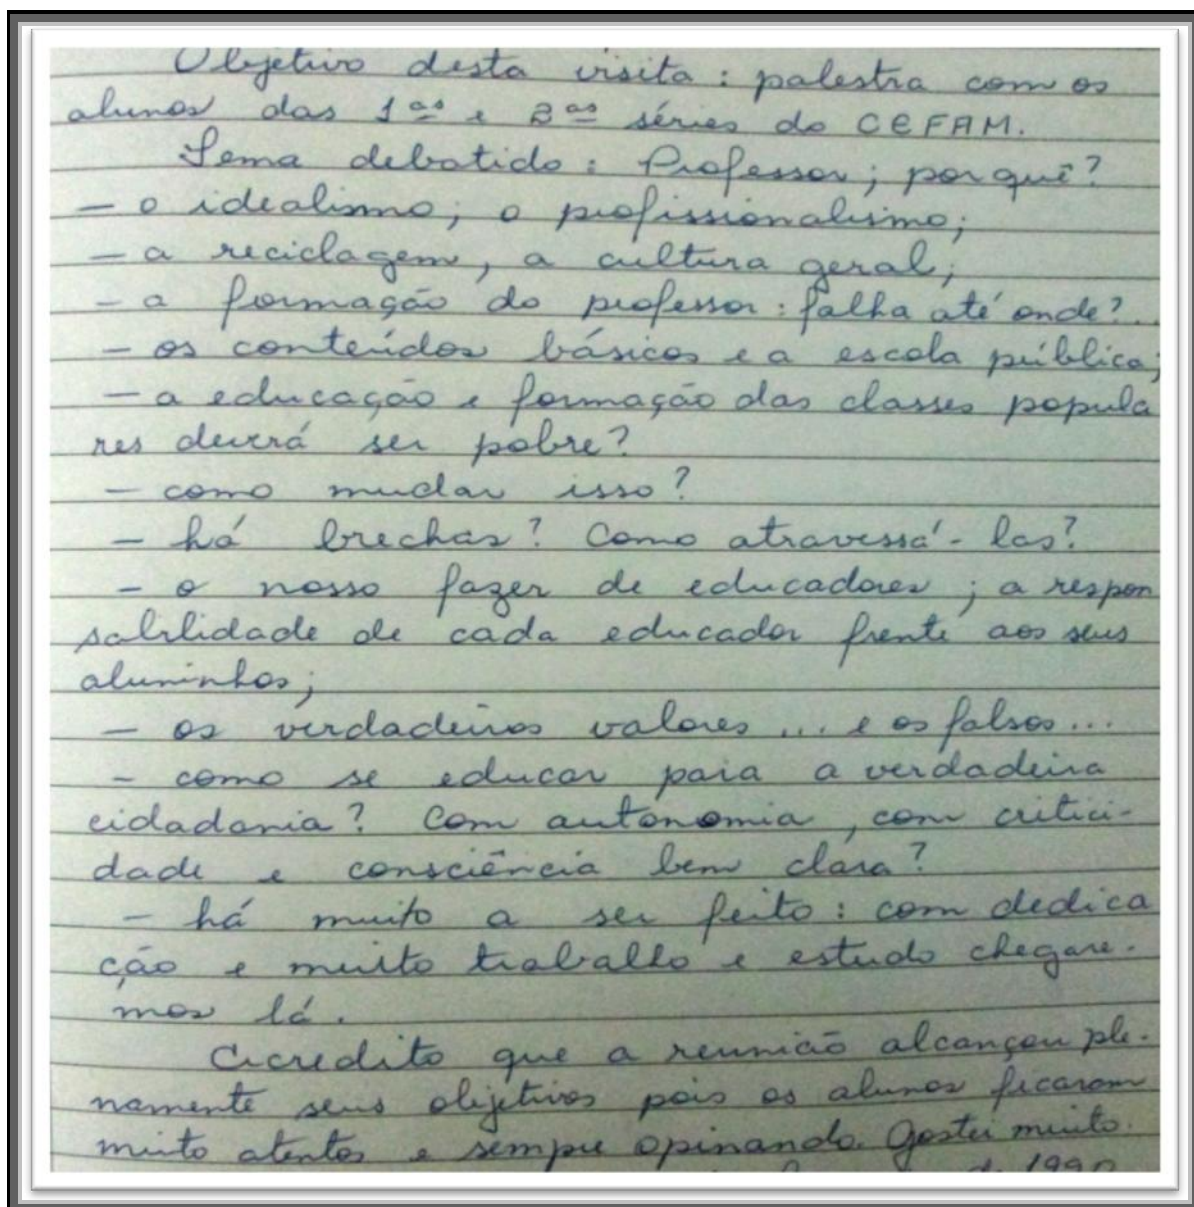 Objetivo desta visita: palestra com os
alunos das 1as e 2as séries do CEFAM.
Tema debatido: Professor; por quê?
- o idealismo; o profissionalismo;
- a reciclagem, a cultura geral;
- a formação do professor: falha até onde?..
- os conteúdos básicos e a escola pública;
- a educação e formação das classes popula
res deverá ser pobre?
- como mudar isso?
- há brechas? Como atravessá-las?
- o nosso fazer de educadores; a respon
sabilidade de cada educador frente aos seus
aluninhos;
- os verdadeiros valores... e os falsos...
- como se educar para a verdadeira
cidadania? Com autonomia, com critici-
dade e consciência bem clara?
- há muito a ser feito: com dedica
ção e muito trabalho e estudo chegare-
mos lá.
Acredito que a reunião alcançou ple-
namente seus objetivos pois os alunos ficaram
muito atentos e sempre opinando. Gostei muito.
de 1990